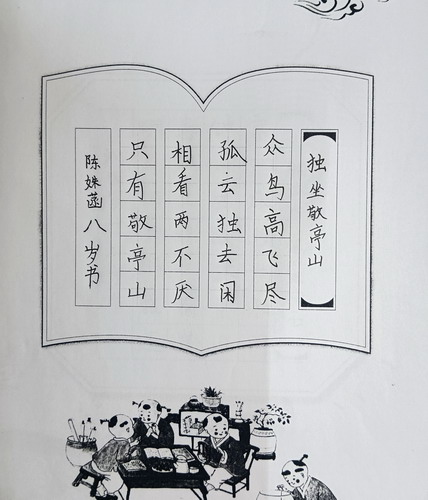 独坐敬亭山
众鸟高飞尽
孤云独去闲
相看两不厌
只有敬亭山
陈姝菡八岁书